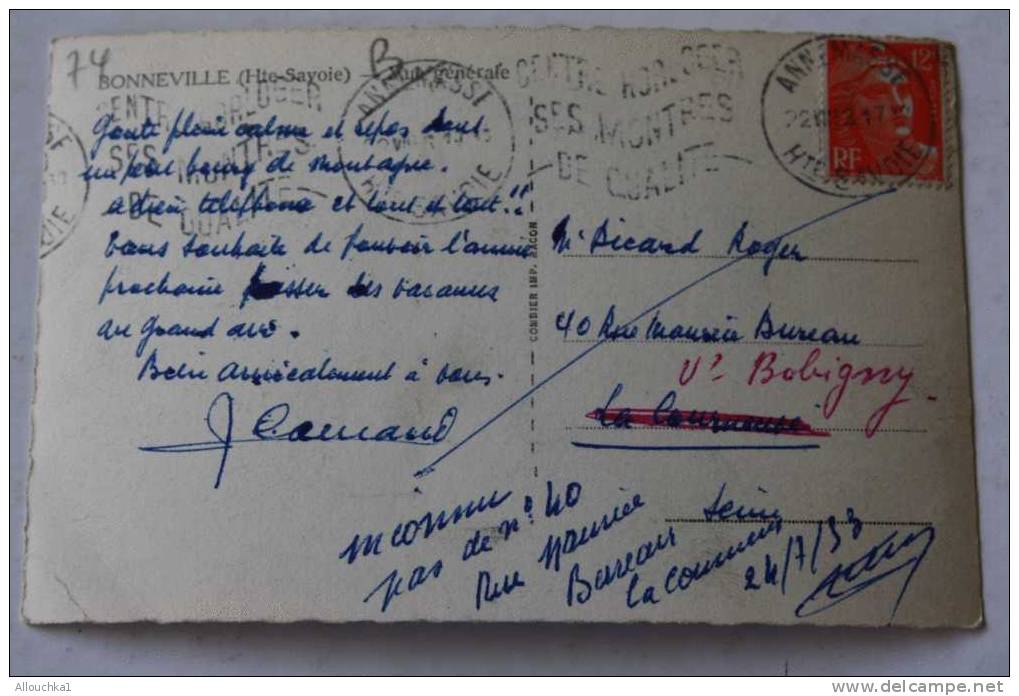 74 B
BONNEVILLE (Hte-Savoie) — Vue générale
CENTRE HORLOGER
SES MONTRES
DE QUALITÉ
CENTRE HORLOGER
SES MONTRES
DE QUALITÉ
ANNEMASSE
HTE SAVOIE
ANNEMASSE
HTE SAVOIE
12F
RF
Goute plein calme et repos dans
un petit bourg de montagne.
telephone et tout et tout !!
Vous souhaite de pouvoir l'année
prochaine passer les vacances
au grand air.
Bien amicalement à vous.
COMBIER IMP. MACON
Mr Bicard Roger
40 Rue Maurice Bureau
Vr Bobigny
La Courneuve
Seine
inconnu
pas de n° 40
Rue Maurice
Bureau
La Courneuve
24/7/53
Allouchka1
www.delcampe.net